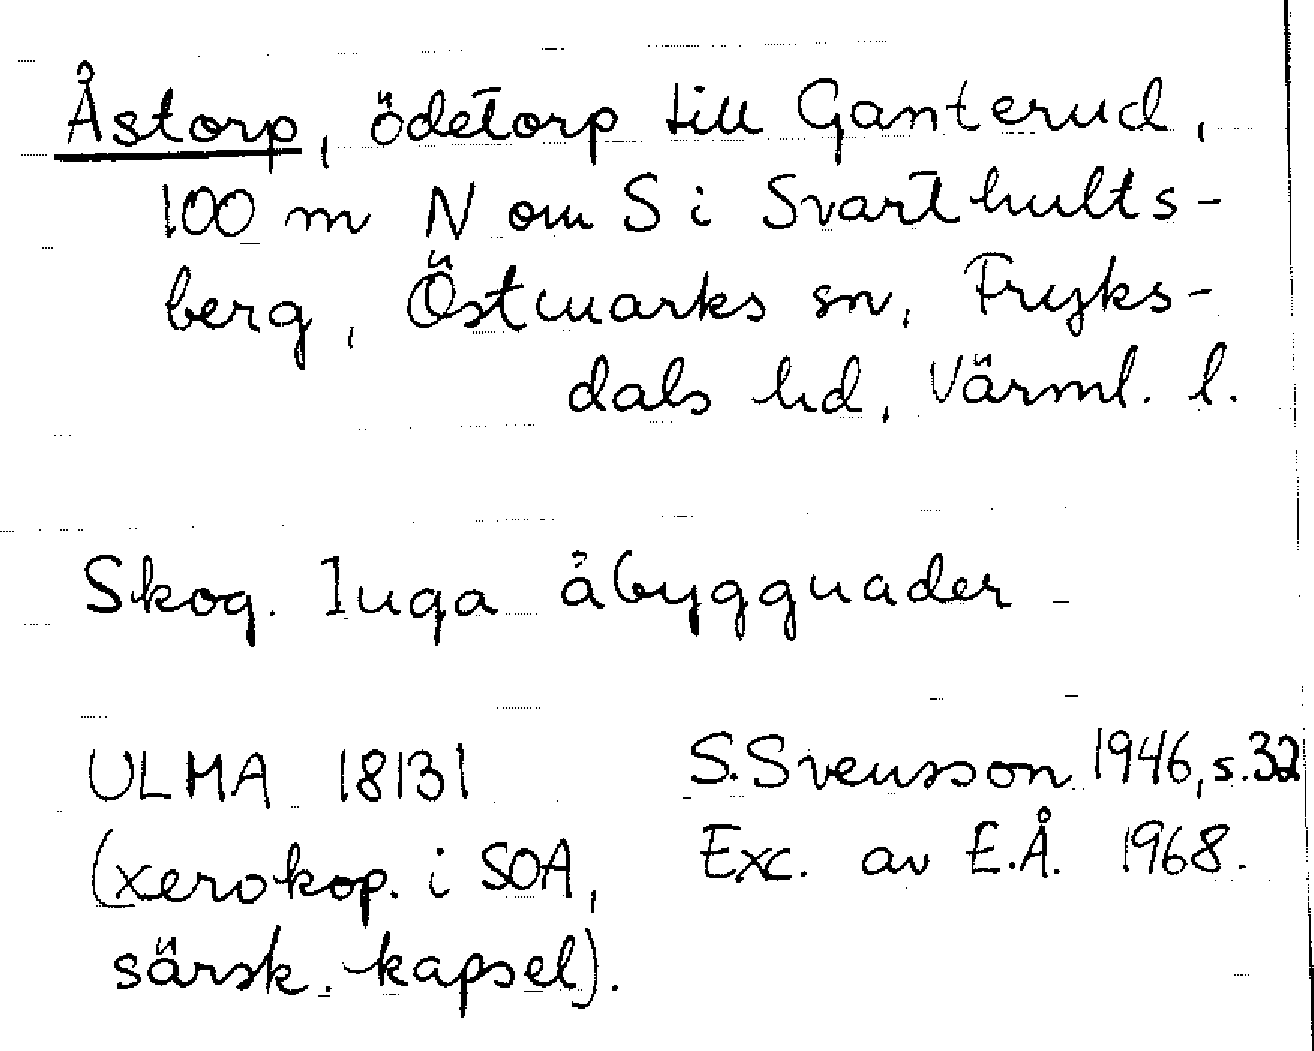 Åstorp, ödetorp till Ganterud,
100 m N om S i Svarthults-
berg, Östmarks sn, Fryks-
dals hd, Värml. l.
Skog. Inga åbyggnader
ULMA 18131
(xerokop. i SOA,
särsk. kapsel).
S. Svensson 1946, s. 32
Exc. av E.Å. 1968.